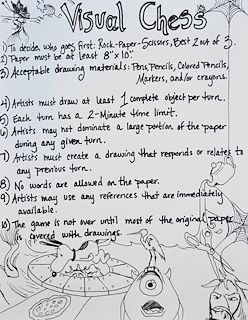 Visual Chess
1) To decide who goes first: Rock-Paper-Scissors, Best 2 out of 3.
2) Paper must be at least 8"x10"
3) Acceptable drawing materials: Pens, Pencils, Colored Pencils,
Markers, and/or crayons.
4) Artists must draw at least 1 complete object per turn.
5) Each turn has a 2-Minute time limit.
6) Artists may not dominate a large portion of the paper
during any given turn.
7) Artists must create a drawing that responds or relates to
any previous turn.
8) No words are allowed on the paper.
9) Artists may use any references that are immediately
available.
10) The game is not over until most of the original paper
is covered with drawings.